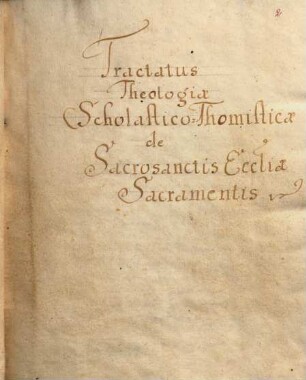 Tractatus
Theologiæ
Scholastico-Thomisticæ
de
Sacrosanctis Eccliæ
Sacramentis